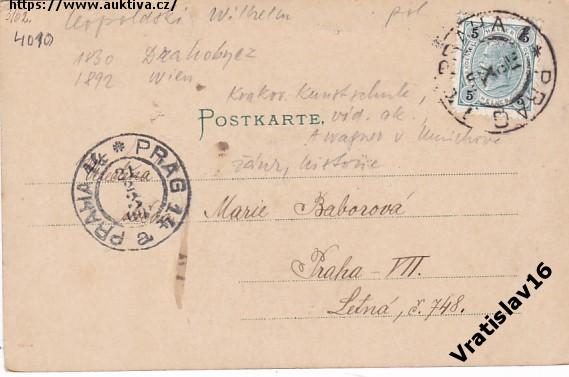 https://www.auktiva.cz/
4090
Leopoldski Wilhelm pol
1830 Drahobycz
1892 Wien
Krakov. Kunstschule,
víd. ak.
POSTKARTE.
A Wagner v Mnichově
žánry, historie
PRAHA 1 * PRAG 1
5 5
5
PRAHA 14 * PRAG 14
Slečna
Marie Baborová
Praha-VII.
Letná, č. 748.
Vratislav16